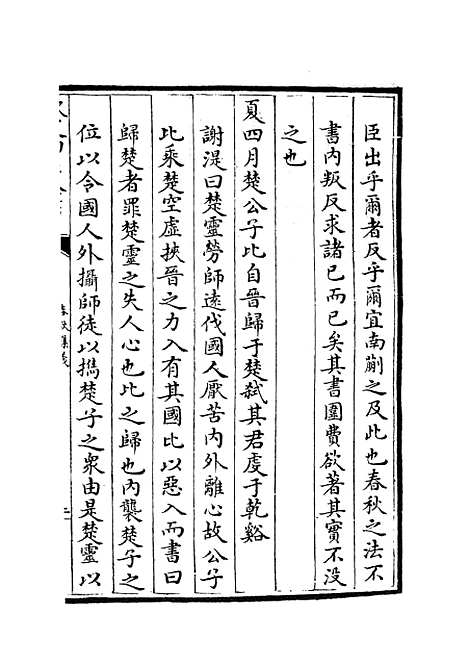 臣出乎爾者反乎爾宜南蒯之及此也春秋之法不
書内叛反求諸已而已矣其書圍費欲著其實不没
之也
夏四月楚公子比自晉歸于楚弑其君虔于乾谿
謝湜曰楚靈勞師逺伐國人厭苦内外離心故公子
比乘楚空虚挾晉之力入有其國比以惡入而書曰
歸楚者罪楚靈之失人心也比之歸也内襲楚子之
位以令國人外攝師徒以携楚子之衆由是楚靈以
春秋集義